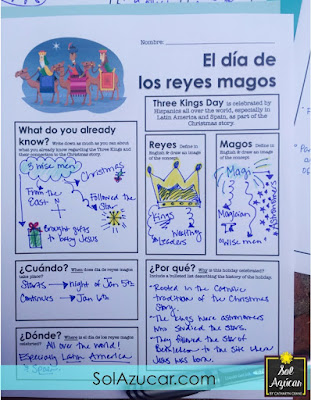 Nombre:
El día de
los reyes magos
Three Kings Day is celebrated by
Hispanics all over the world, especially in
Latin America and Spain, as part of the
Christmas story.
What do you already
know? Write down as much as you can about
what you already know regarding the Three Kings and
their connection to the Christmas story.
3 wise men
Christmas
From the
East
N
Followed the
Star
Brought gifts
to baby Jesus
Reyes Define in
English & draw an image
of the concept.
Kings
Waiting
Leaders
Magos Define in
English & draw an image
of the concept.
Magi
Magician
Astronomers
Wise men
¿Cuándo? When does día de reyes magos
take place?
Starts night of Jan 5th
Continues Jan 6th
¿Dónde? Where is el día de reyes magos
celebrated?
All over the world!
Especially Latin America
& Spain
¿Por qué? Why is this holiday celebrated?
Include a bulleted list describing the history of the holiday.
• Rooted in the Catholic
tradition of the Christmas
Story.
• The kings were astronomers
who studied the stars.
• They followed the Star of
Bethlehem to the site where
Jesus was born.
SolAzucar.com
Sol
Azúcar